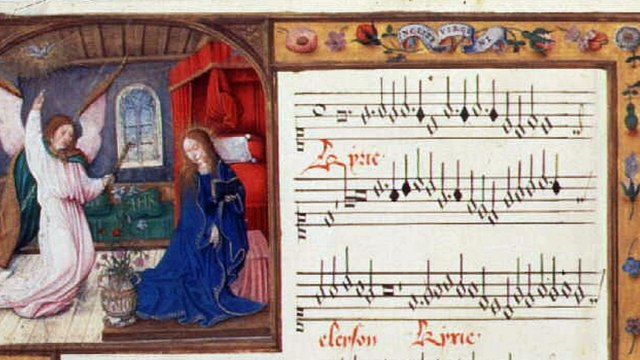 IHS
Kyrie
eleyson Kyrie